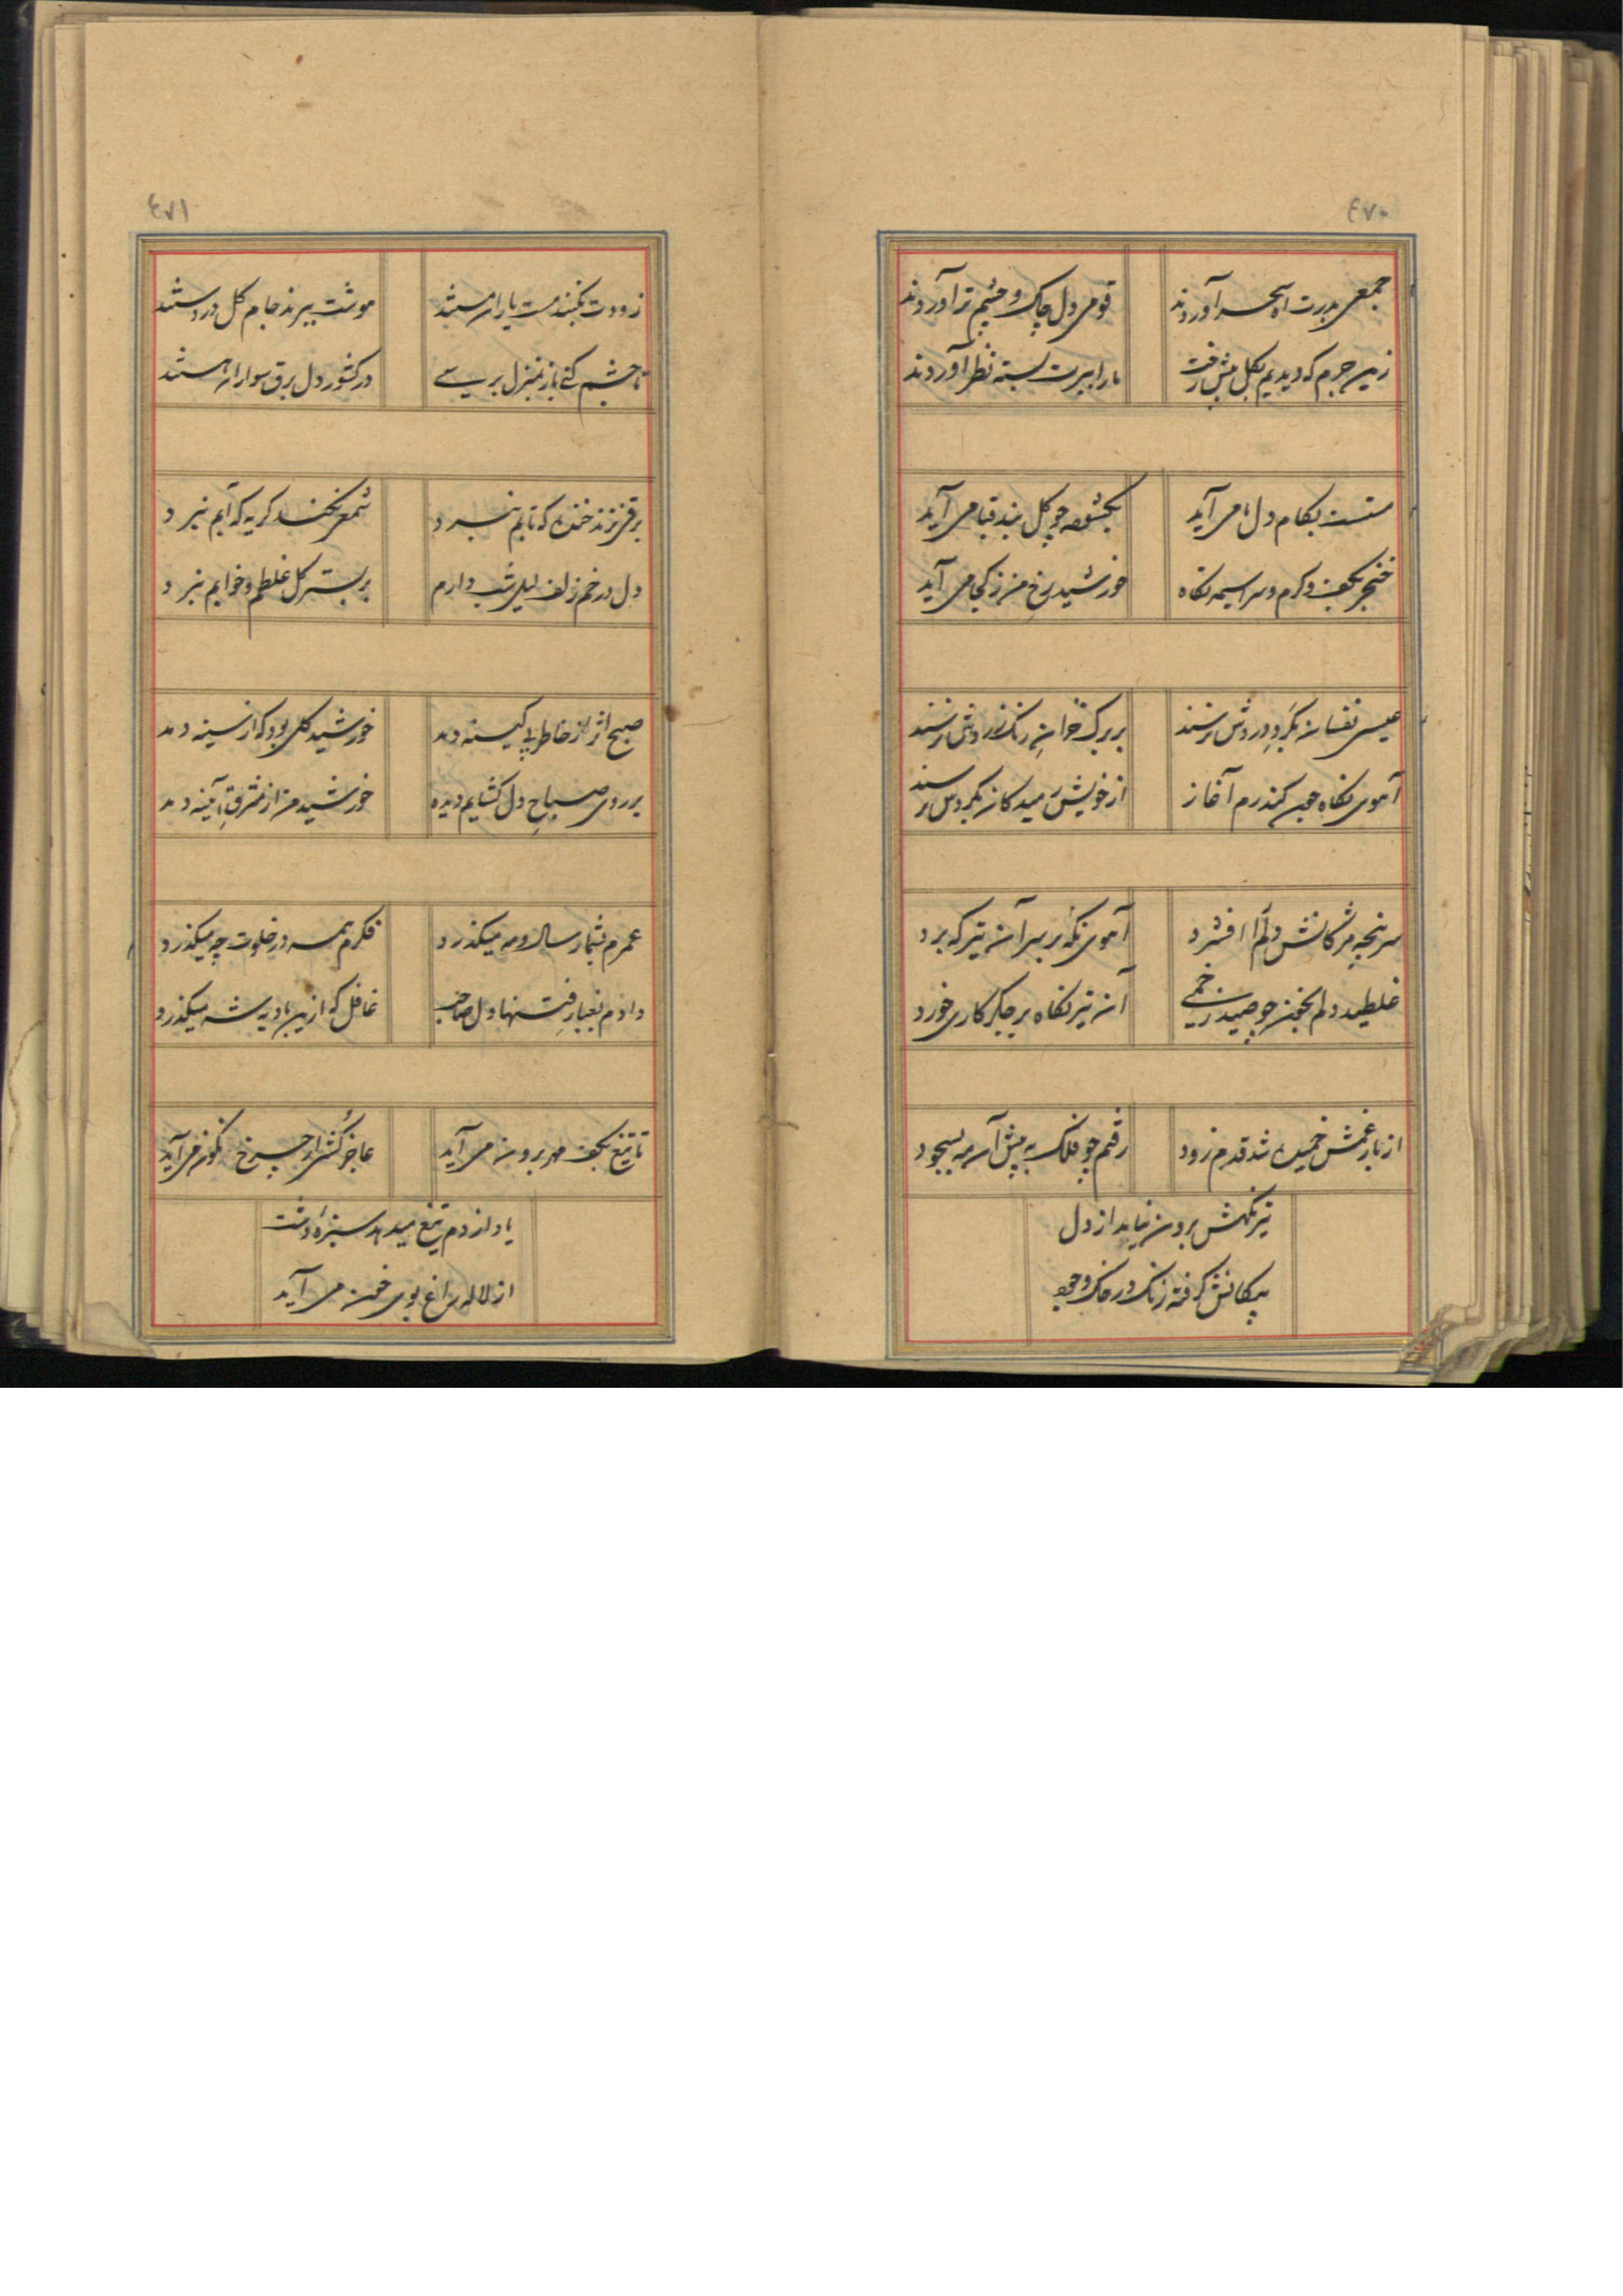 ٤٧٠
جمعی بدرت آه سحر آوردند
قومی دل چاک و چشم تر آوردند
زین جرم که دیدیم بگل پیش رخت
ما را ببرت بسته نظر آوردند
مستست بکام دل ما می آید
بگشوده چو گل بند قبا می آید
خنجر بکف و گرم و سراسیمه نگاه
خورشید رخ من ز کجا می آید
عیسی نفسان بگرد دردش نرسند
بر برگ خزان رنگ زردش نرسند
آهوی نگاه چون کند رم آغاز
از خویش رمیدگان بگردش نرسند
سر پنجه مژگانش دلم را افشرد
آهوی نگه بر سر آن تیر که برد
غلطید دلم بخون چو صید زخمی
آن تیر نگاه بر جگر کاری خورد
از بار غمش خمیده شد قدم زود
رفتم چو فلک به پیش آن مه بسجود
تیر نگهش برون نیاید از دل
پیکانش گرفته زنگ در خاک وجود
٤٧١
زودت بکشند مست یاران مستند
موشت ببرند جام گل در دستند
تا چشم کنی باز بمنزل برسی
در کشور دل برق سواران هستند
برقی نزند خنده که تابم نبرد
شمعی نکند گریه که آبم نبرد
دل در خم زلف لیلی شب دارم
بر بستر گل غلطم و خوابم نبرد
صبح اثر از خاطر بی کینه دمد
خورشید گلی بود که از سینه دمد
بر روی صباح دل گشایم دیده
خورشید من از مشرق آیینه دمد
عمرم بشمار سال و مه میگذرد
فکرم همه در خلوت چه میگذرد
دادم بغبار فتنها دل صاحب
غافل که ازین بادیه شه میگذرد
تا تیغ بکف مهر برون می آید
عاجز کش از چرخ نگون می آید
یاد از دم تیغ میدهد سبزه دشت
از لاله راغ بوی خون می آید